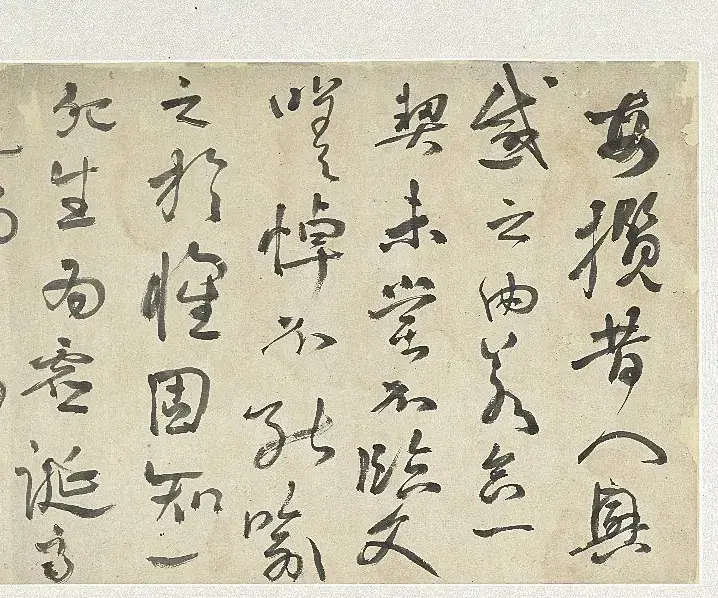 每攬昔人興
感之由若合一
契未嘗不臨文
嗟悼不能喻
之於懷固知一
死生為虛誕齊